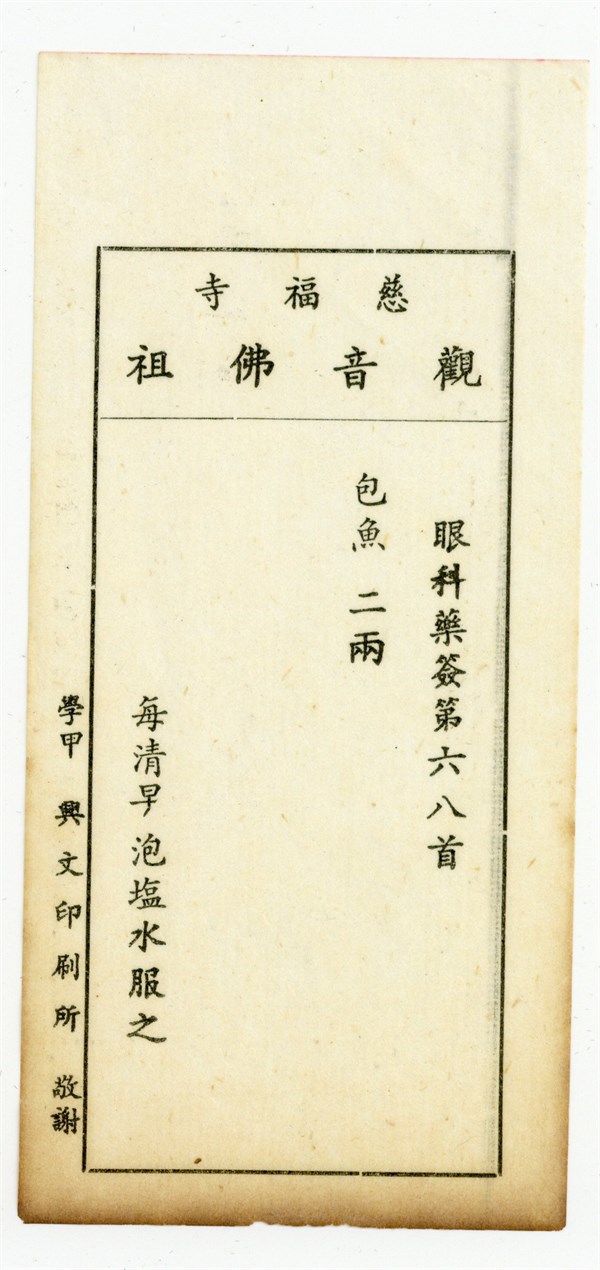 慈福寺
觀音佛祖
眼科藥簽第六八首
包魚 二兩
每清早泡塩水服之
學甲 興文印刷所 敬謝